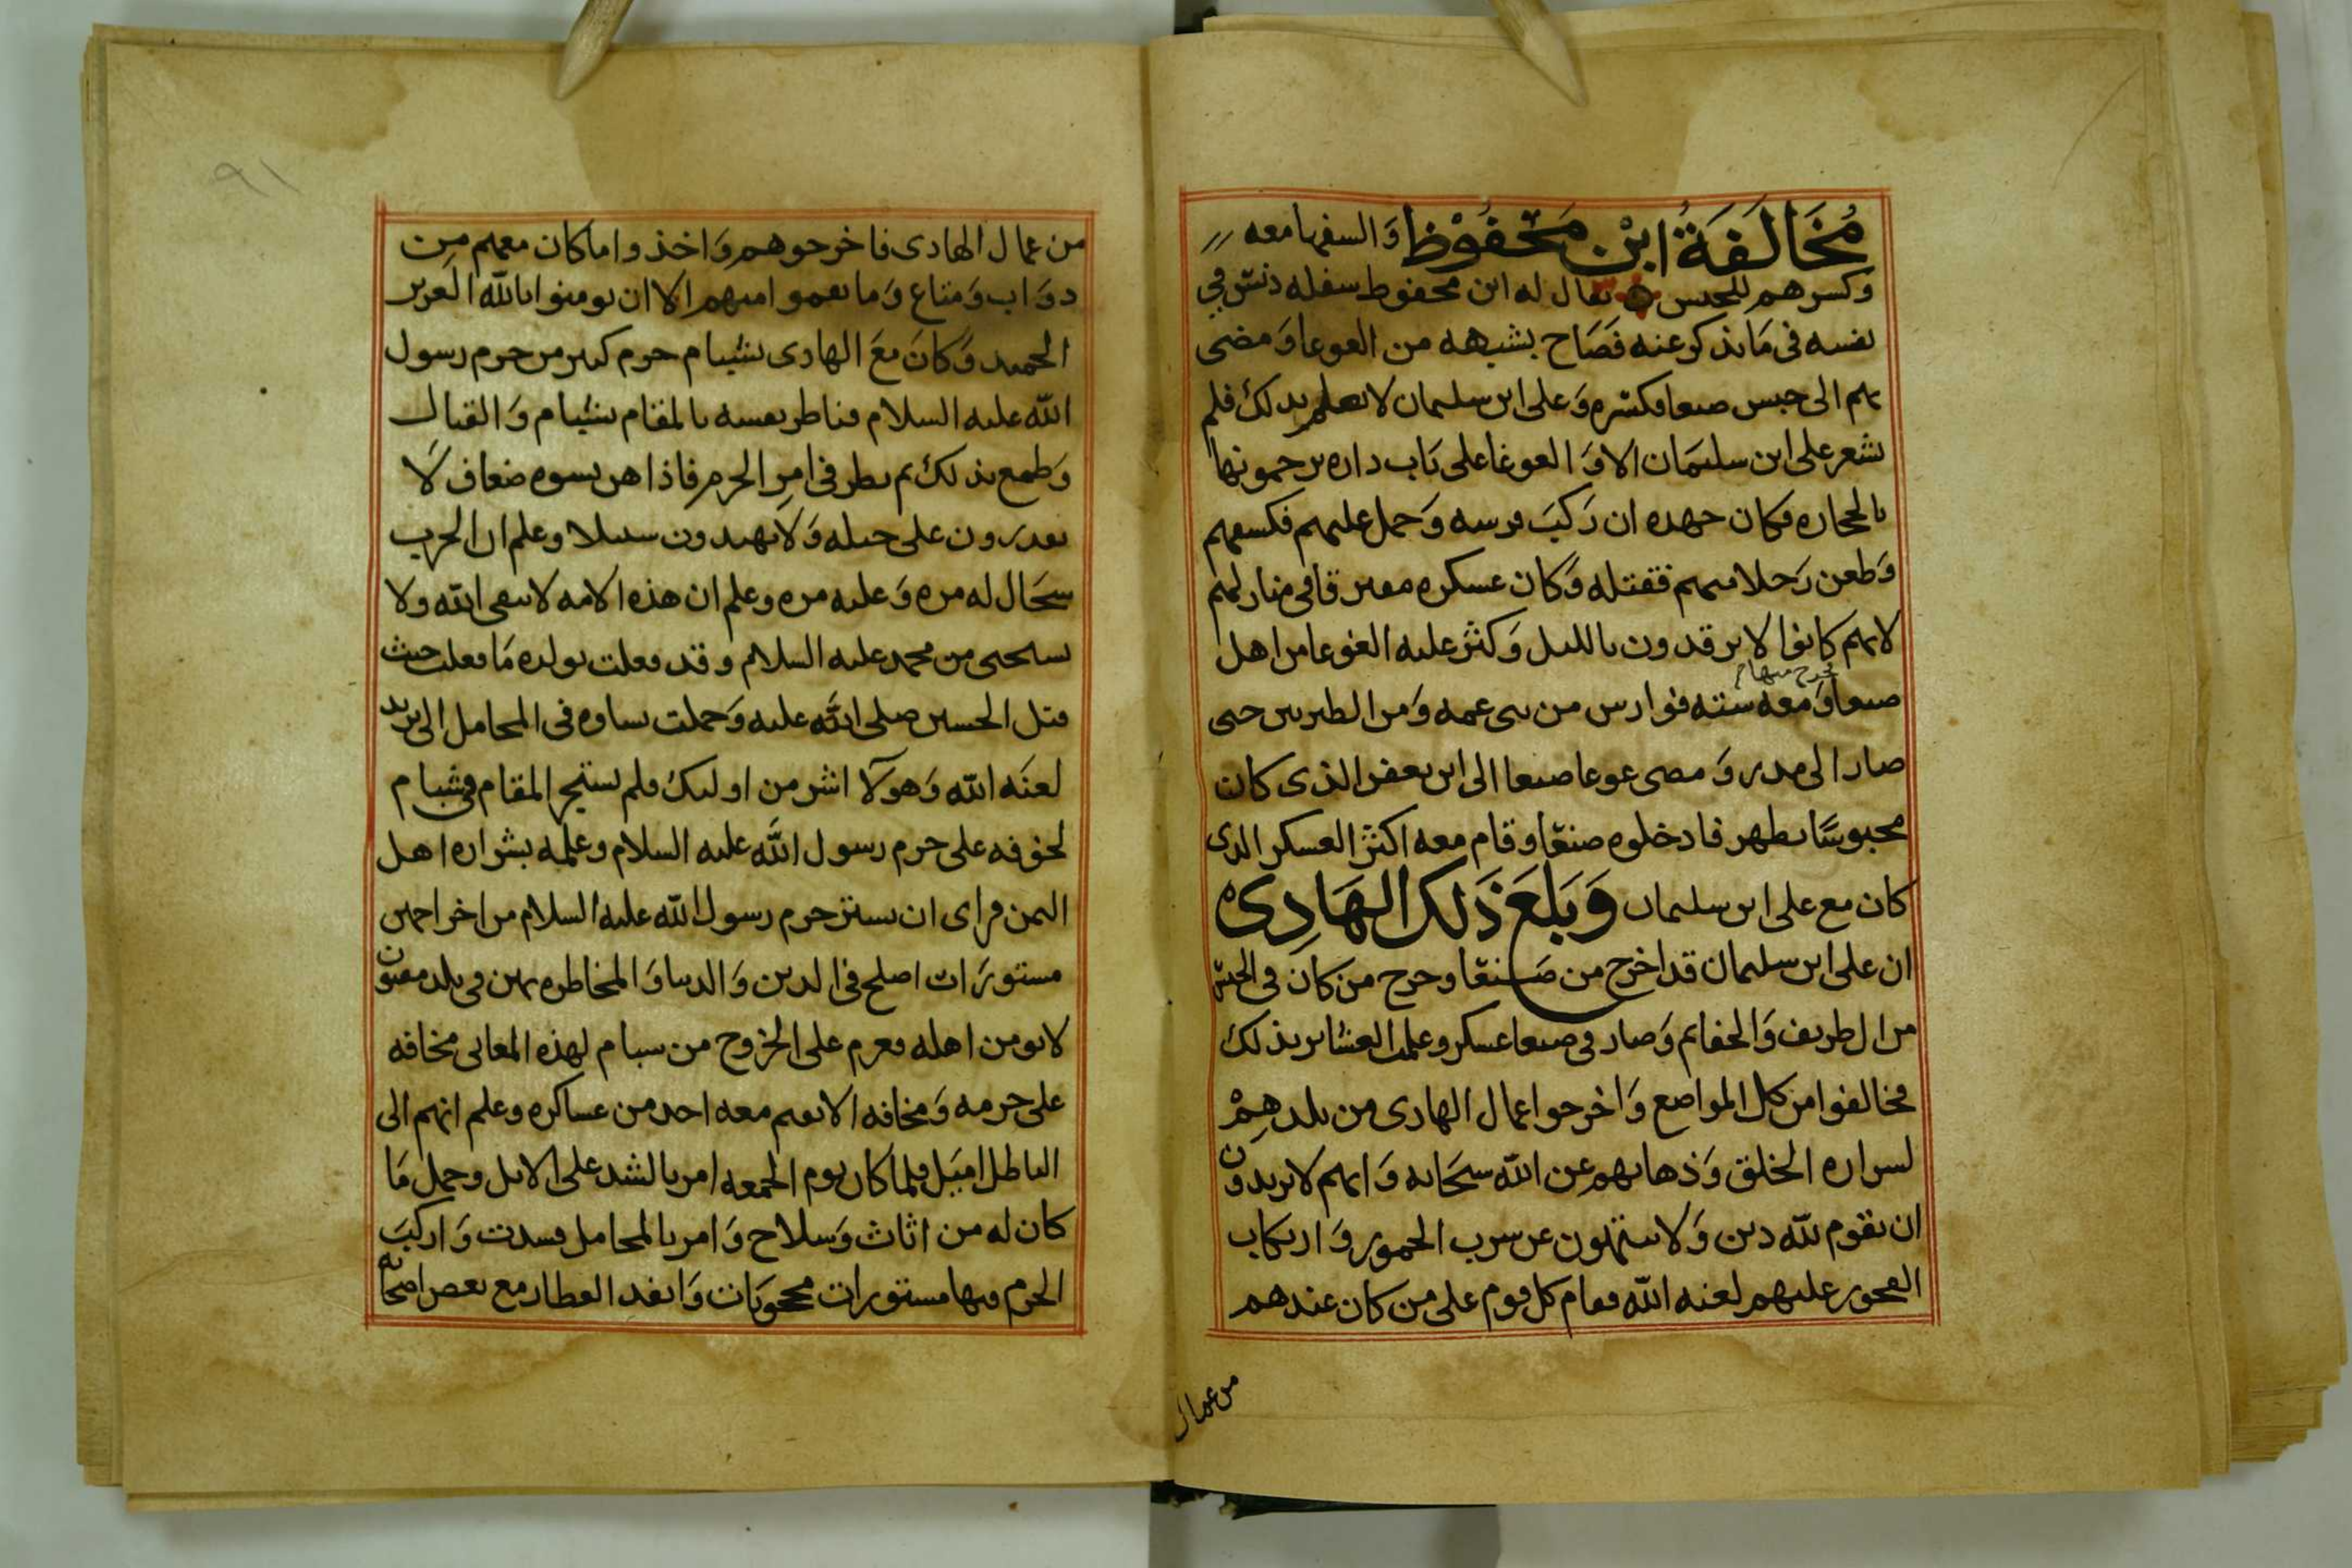 مُخَالَفَةُ ابْن مَحْفُوْظ وَالسفها معه
وكسرهم للحبس فقال له ابن محفوظ سفله دنس في
نفسه في مَا يذكر عنه فَصَاح بشبهه من الغوغا وَمضى
بهم الى حبس صنعا فكسره وَعلى ابن سليمان لا يعلم بذلك فلم
يشعر على ابن سليمَان الا وَالغوغا على بَاب داره يرجمونها
بالحجاره فكان جهده ان رَكبَ فرسه وَحمل عليهم فكسعهم
وَطعن رَجلا منهم فقتله وَكان عسكره مفترقا في منازلهم
لانهم كانوا لا يرقدون بالليل وَكثر عليه الغوغا من اهل
فخرج منها
صنعا وَمعه سته فوارس من بنى عمه وَمن الطبريين حتى
صار الى مدر وَمضى غوغا صنعا الى ابن يعفر الذى كان
محبوسًا بظهر فادخلوه صنعَا وقام معه اكثر العسكر الذى
كان مع على ابن سليمان وَبَلغَ ذَلك الهَادِى
ان على ابن سليمان قد اخرج من صَنعَا وخرج من كان في الحبس
من ال طريف وَالخفاتم وَصار في صنعا عسكر وعلمت العشاير بذلك
فخالفوا من كل المواضع وَاخرجوا عمال الهادى من بلدهِمْ
لشراره الخلق وَذهابهم عن الله سبحَانه وَانهم لا يريدون
ان يقوم لله دين وَلا ينتهون عن شرب الخمور وَارتكاب
الفجور عليهم لعنه الله فقام كل قوم على من كان عندهم
من عمال
٩١
من عمال الهادى فاخرجوهم وَاخذوا ما كان معهم من
دوَاب وَمتاع وَما نقموا منهم الا ان يومنوا بالله العزيز
الحميد وَكانَ معَ الهادى بشبام حرم كثير من حرم رسول
الله عليه السلام فناظر نفسه بالمقام بشبام وَالقتال
وَطمع بذلك ثم نظر في امر الحرم فاذا هن نسوه ضعاف لَا
يقدرون على حيله وَلا يهتدون سبيلا وعلم ان الحرب
سجَال له مره وَعليه مره وعلم ان هذه الامه لا تتقى الله ولا
تستحى من محمد عليه السلام وقد فعلت بولده مَا فعلت حيث
قتل الحسين صلى الله عليه وَحملت نساوه في المحامل الى يزيد
لعنَه الله وَهولآ اشر من اوليك فلم يستجز المقام في شبام
لخوفه على حرم رسول الله عليه السلام وعلمه بشراره اهل
اليمن فراى ان ستر حرم رسول الله عليه السلام من اخراجهن
مستورَات اصلح في الدين وَالدنيا وَالمخاطره بهن في بلد مفتون
لا يومن اهله فعزم على الخروج من شبام لهذه المعانى مخافه
على حرمه وَمخافه الا يقيم معه احد من عساكره وعلم انهم الى
الباطل اميَل فلما كان يوم الجمعه امر بالشد على الابل وحمل مَا
كان له من اثاث وَسلاح وَامر بالمحامل فشدت وَاركبَ
الحرم فيها مستورات محجوبَات وَانفد العطار مع بعض اصحابه